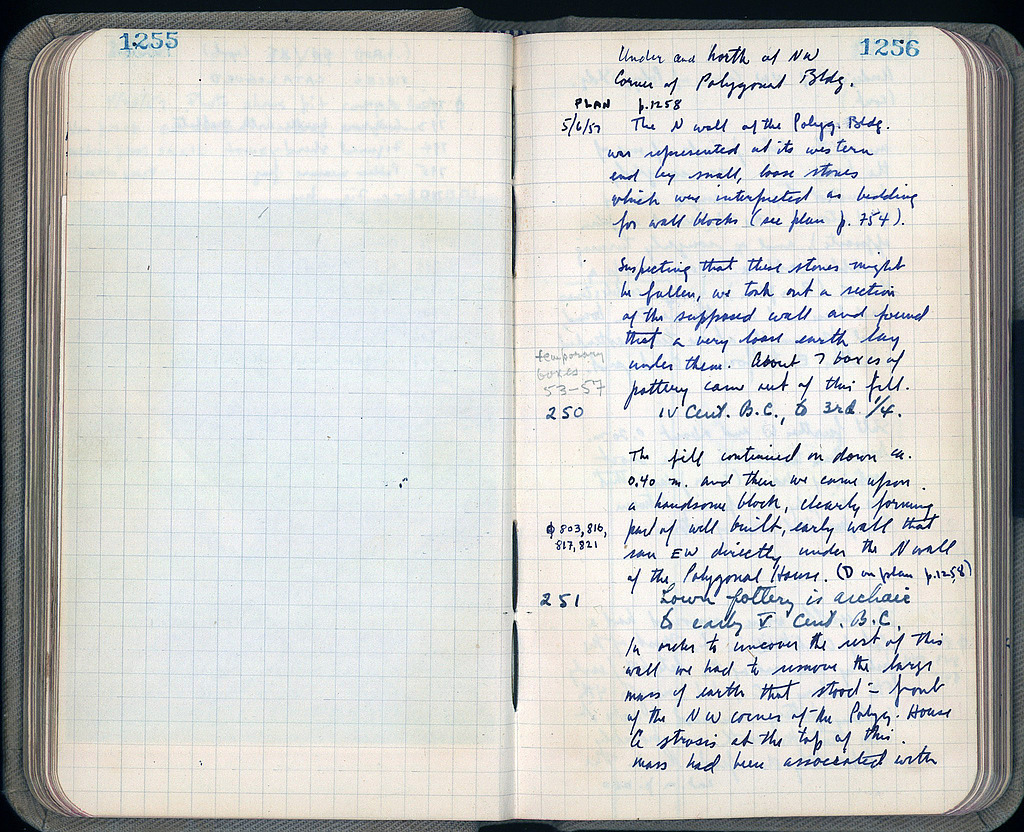 1255
1256
Under and North of NW
Corner of Polygonal Bldg.
PLAN p.1258
5/6/57 The N wall of the Polyg. Bldg.
was represented at its western
end by small, loose stones
which were interpreted as bedding
for wall blocks (see plan p. 754).
Suspecting that these stones might
be fallen, we took out a section
of the supposed wall and found
that a very loose earth lay
temporary
boxes
53-57
under them. About 7 boxes of
pottery came out of this fill.
250 IV Cent. B.C., to 3rd 1/4.
The fill continued on down ca.
0.40 m. and then we came upon
a handsome block, clearly forming
ϕ 803, 816,
817, 821
part of well built, early wall that
ran EW directly under the N wall
of the Polygonal House. (D on plan p.1258)
251 Lower pottery is archaic
to early V Cent. B.C.
In order to uncover the rest of this
wall we had to remove the large
mass of earth that stood = front
of the NW corner of the Polyg. House
A strosis at the top of this
mass had been associated with